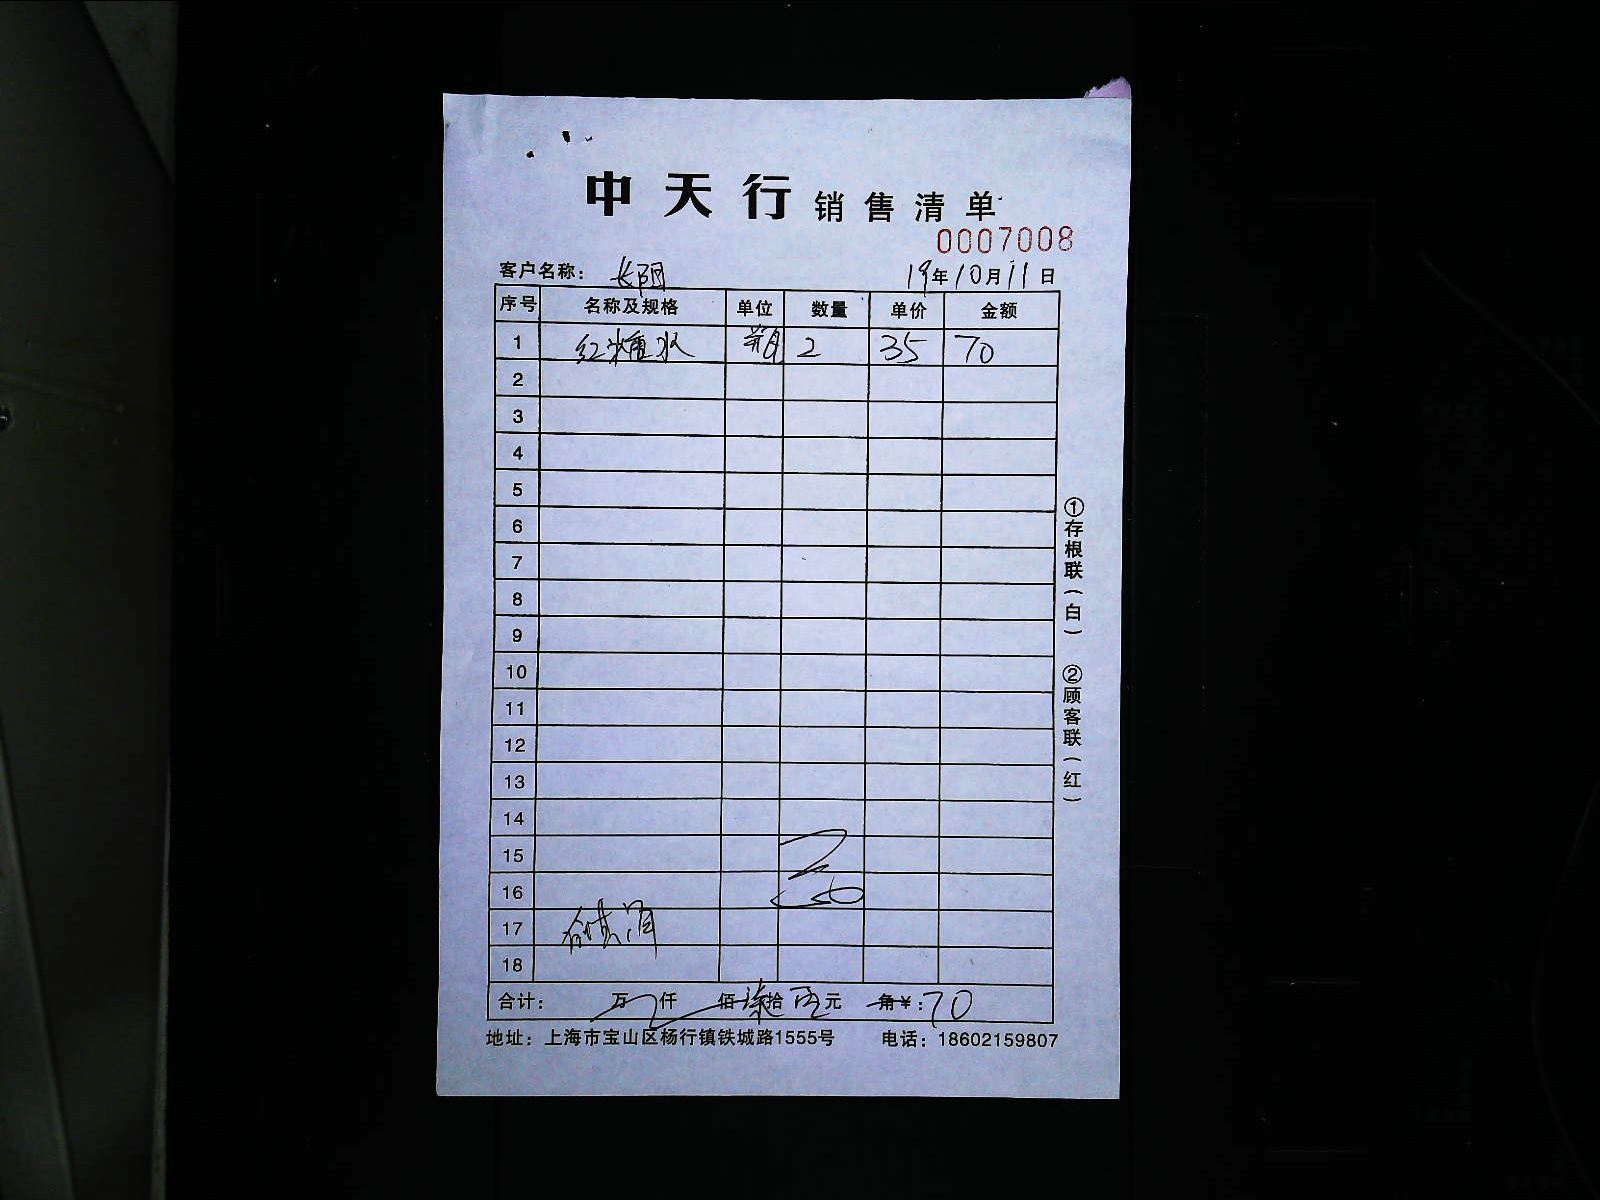 中天行 销售清单
0007008
客户名称： 长阴 19年10月11日
序号 名称及规格 单位 数量 单价 金额
1 红糖水 瓶 2 35 70
2
3
4
5
6
7
8
9
10
11
12
13
14
15
16
17
18
合计： 万 仟 佰 柒拾 元 角 ￥:70
地址：上海市宝山区杨行镇铁城路1555号 电话：18602159807
①存根联(白) ②顾客联(红)